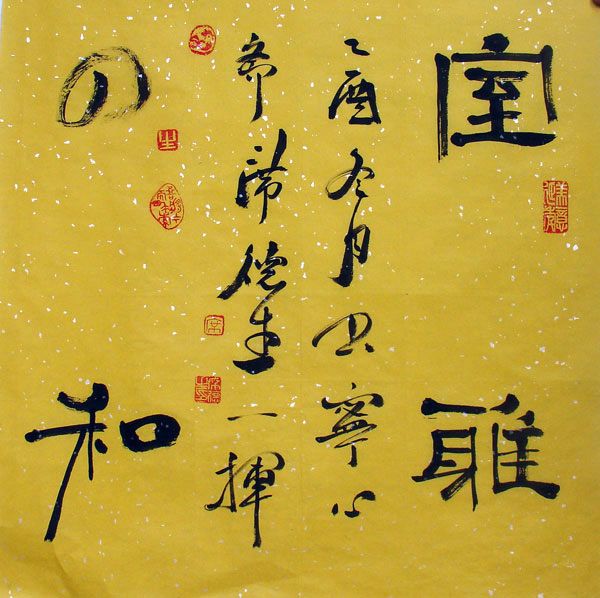 室雅
乙酉冬月寧心
斋德生一揮
人和